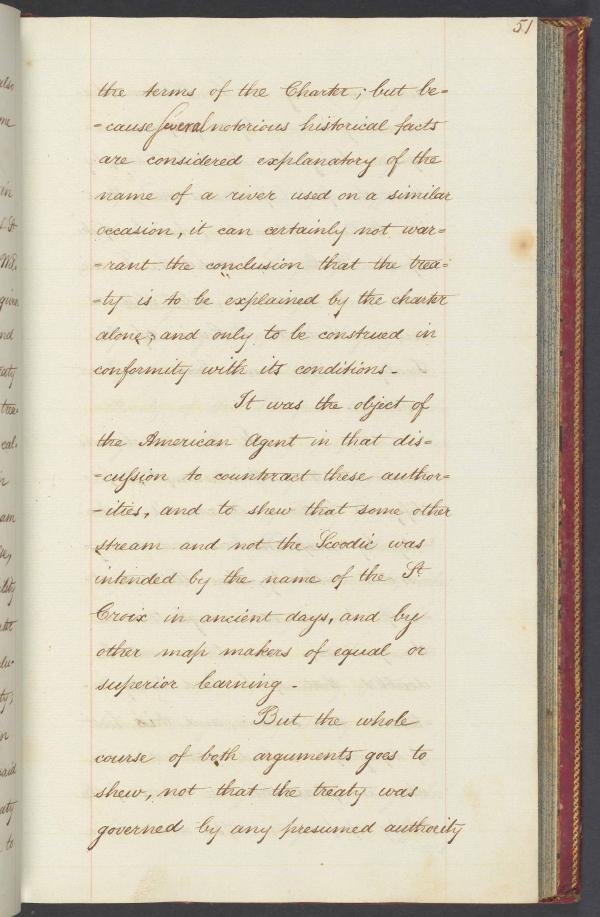 51
the terms of the Charter; but be=
=cause several notorious historical facts
are considered explanatory of the
name of a river used on a similar
occasion, it can certainly not war=
=rant the conclusion that the trea=
=ty is to be explained by the charter
alone, and only to be construed in
conformity with its conditions_
It was the object of
the American Agent in that dis=
=cuſsion to counteract these author=
=ities, and to shew that some other
stream and not the Scoodic was
intended by the name of the St
Croix in ancient days, and by
other map makers of equal or
superior learning_
But the whole
course of both arguments goes to
shew, not that the treaty was
governed by any presumed authority